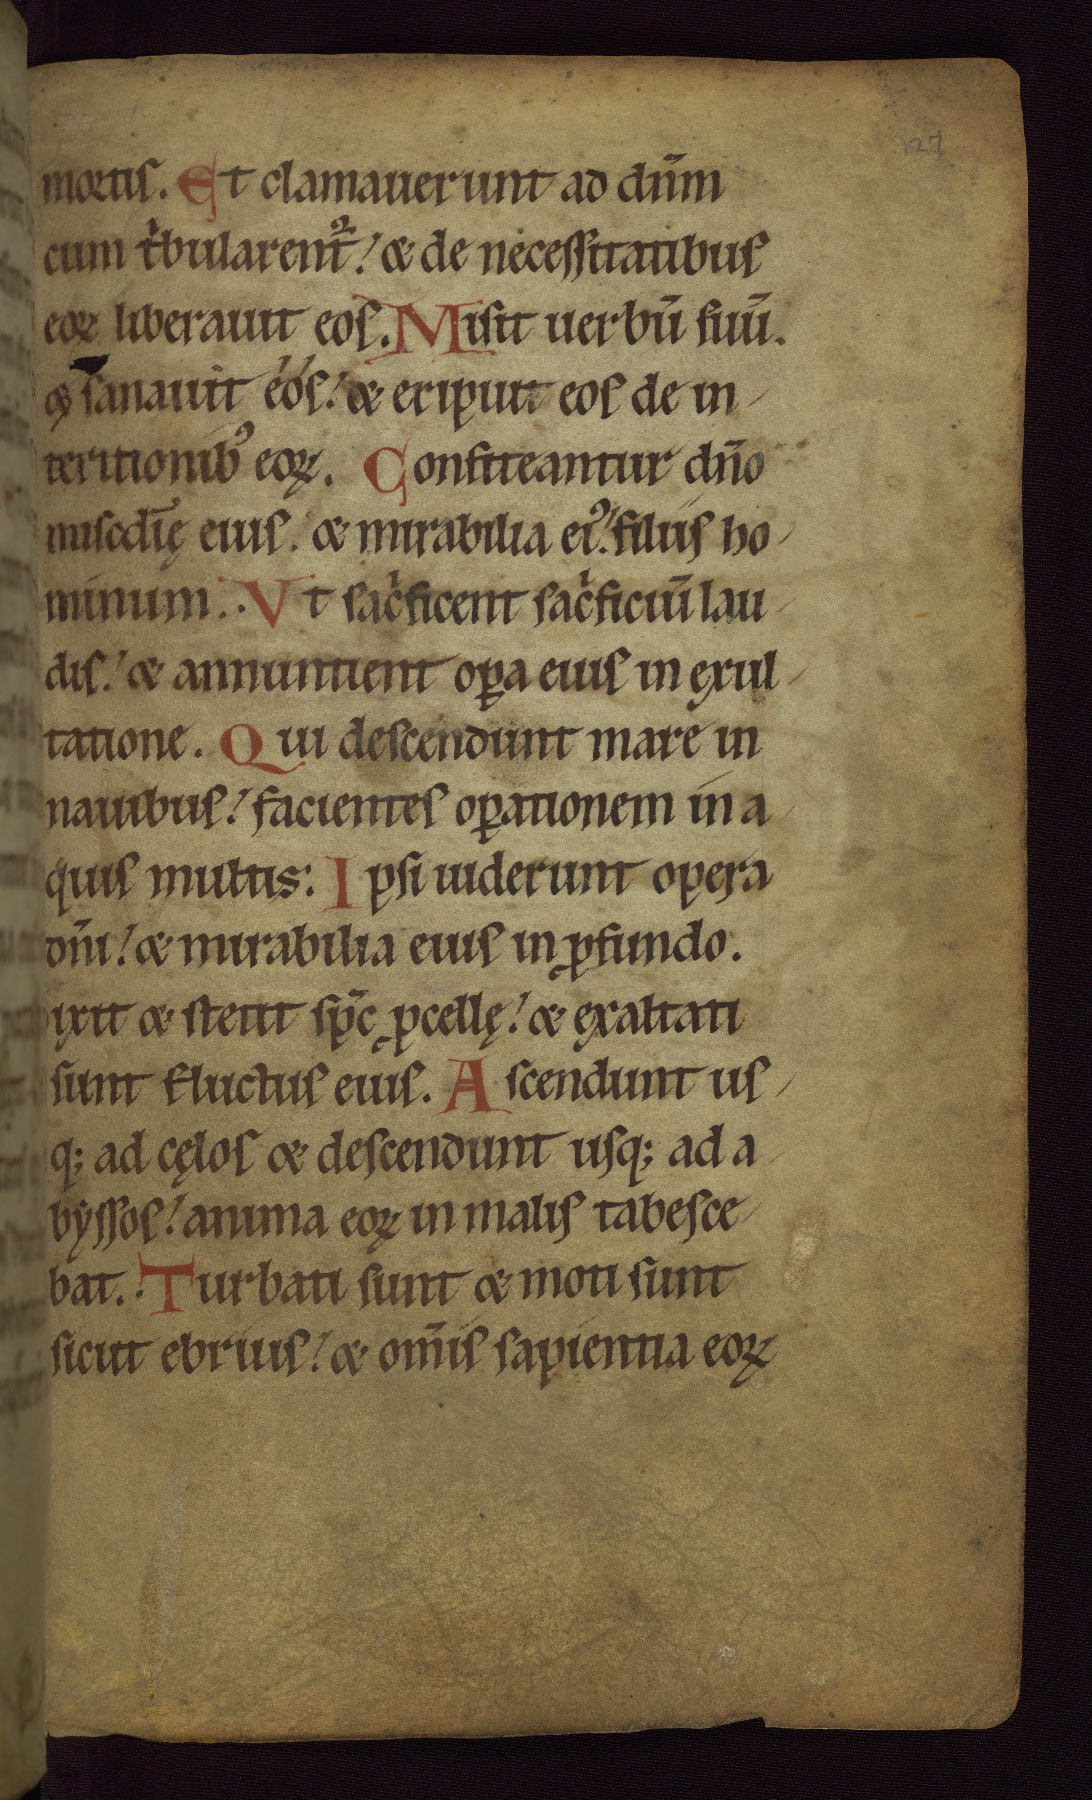 127
mortis. Et clamauerunt ad dn̄m
cum tⁱbularent᷑! & de necessitatibus
eoꝝ liberauit eos. Misit uerbū suū.
sanauit eos! & eripuit eos de in-
teritionibꝰ eoꝝ. Confiteantur dn̄o
miscd̄ię eius. & mirabilia eiꝰ. filiis ho-
minum. Vt sacⁱficent sacⁱficiū lau-
dis! & annuntient oꝑa eius in exul-
tatione. Qui descendunt mare in
nauibus! facientes oꝑationem in a-
quis multis: Ipsi uiderunt opera
dn̄i! & mirabilia eius in ꝓfundo.
ixit & stetit sp̄c ꝓcellę! & exaltati
sunt fluctus eius. Ascendunt us-
q; ad cęlos & descendunt usq; ad a-
byssos! anima eoꝝ in malis tabesce-
bat. Turbati sunt & moti sunt
sicut ebrius! & om̄is sapientia eoꝝ